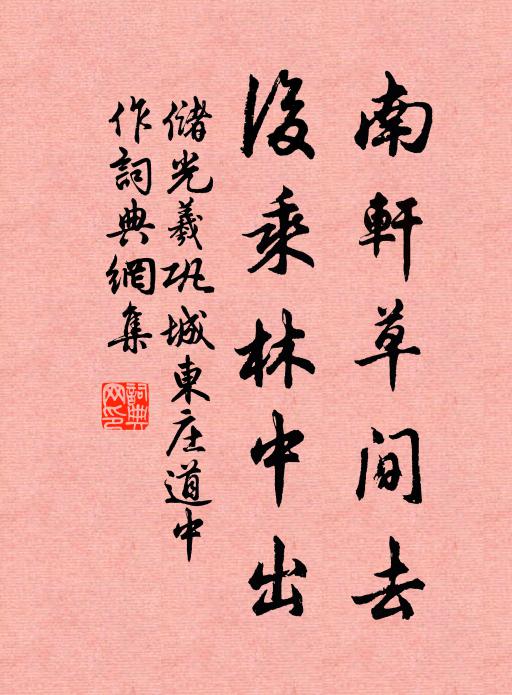 南軒草間去
後乘林中出
儲光羲巩城東庄道中
作詞典網集
詞典
网印